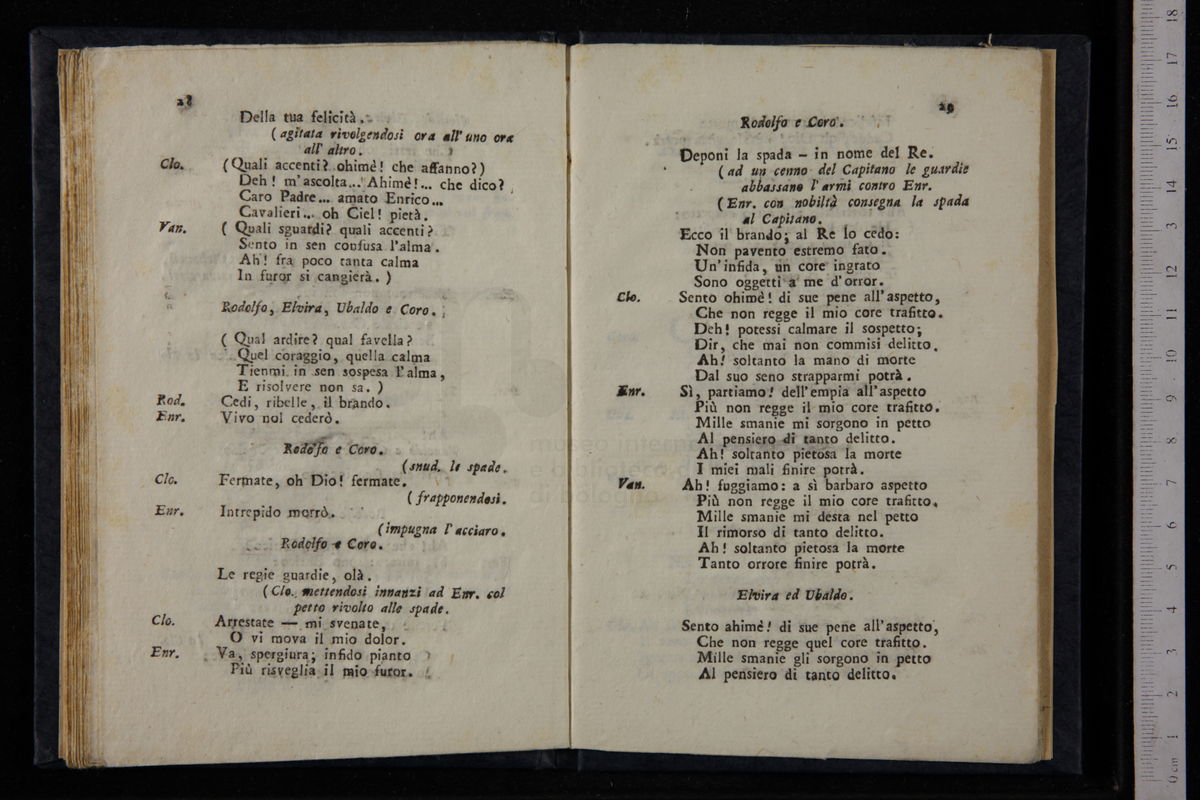 28
Della tua felicità.
( agitata rivolgendosi ora all' uno ora
all' altro.
Clo. (Quali accenti? ohimè! che affanno?)
Deh! m'ascolta... Ahimè!... che dico?
Caro Padre... amato Enrico...
Cavalieri... oh Ciel! pietà.
Van. ( Quali sguardi? quali accenti?
Sento in sen confusa l'alma.
Ah! fra poco tanta calma
In furor si cangierà. )
Rodolfo, Elvira, Ubaldo e Coro.
( Qual ardire? qual favella?
Quel coraggio, quella calma
Tienmi in sen sospesa l'alma,
E risolvere non sa. )
Rod. Cedi, ribelle, il brando.
Enr. Vivo nol cederò.
Rodolfo e Coro.
(snud. le spade.
Clo. Fermate, oh Dio! fermate.
( frapponendosi.
Enr. Intrepido morrò.
(impugna l' acciaro.
Rodolfo e Coro.
Le regie guardie, olà.
(Clo. mettendosi innanzi ad Enr. col
petto rivolto alle spade.
Clo. Arrestate — mi svenate,
O vi mova il mio dolor.
Enr. Va, spergiura; infido pianto
Più risveglia il mio furor.
29
Rodolfo e Coro.
Deponi la spada – in nome del Re.
( ad un cenno del Capitano le guardie
abbassano l' armi contro Enr.
( Enr. con nobiltà consegna la spada
al Capitano.
Ecco il brando; al Re lo cedo:
Non pavento estremo fato.
Un' infida, un core ingrato
Sono oggetti a me d'orror.
Clo. Sento ohimè! di sue pene all'aspetto,
Che non regge il mio core trafitto.
Deh! potessi calmare il sospetto;
Dir, che mai non commisi delitto.
Ah! soltanto la mano di morte
Dal suo seno strapparmi potrà.
Enr. Sì, partiamo! dell'empia all'aspetto
Più non regge il mio core trafitto.
Mille smanie mi sorgono in petto
Al pensiero di tanto delitto.
Ah! soltanto pietosa la morte
I miei mali finire potrà.
Van. Ah! fuggiamo: a sì barbaro aspetto
Più non regge il mio core trafitto.
Mille smanie mi desta nel petto
Il rimorso di tanto delitto.
Ah! soltanto pietosa la morte
Tanto orrore finire potrà.
Elvira ed Ubaldo.
Sento ahimè! di sue pene all'aspetto,
Che non regge quel core trafitto.
Mille smanie gli sorgono in petto
Al pensiero di tanto delitto.
0 cm 1 2 3 4 5 6 7 8 9 10 11 12 13 14 15 16 17 18